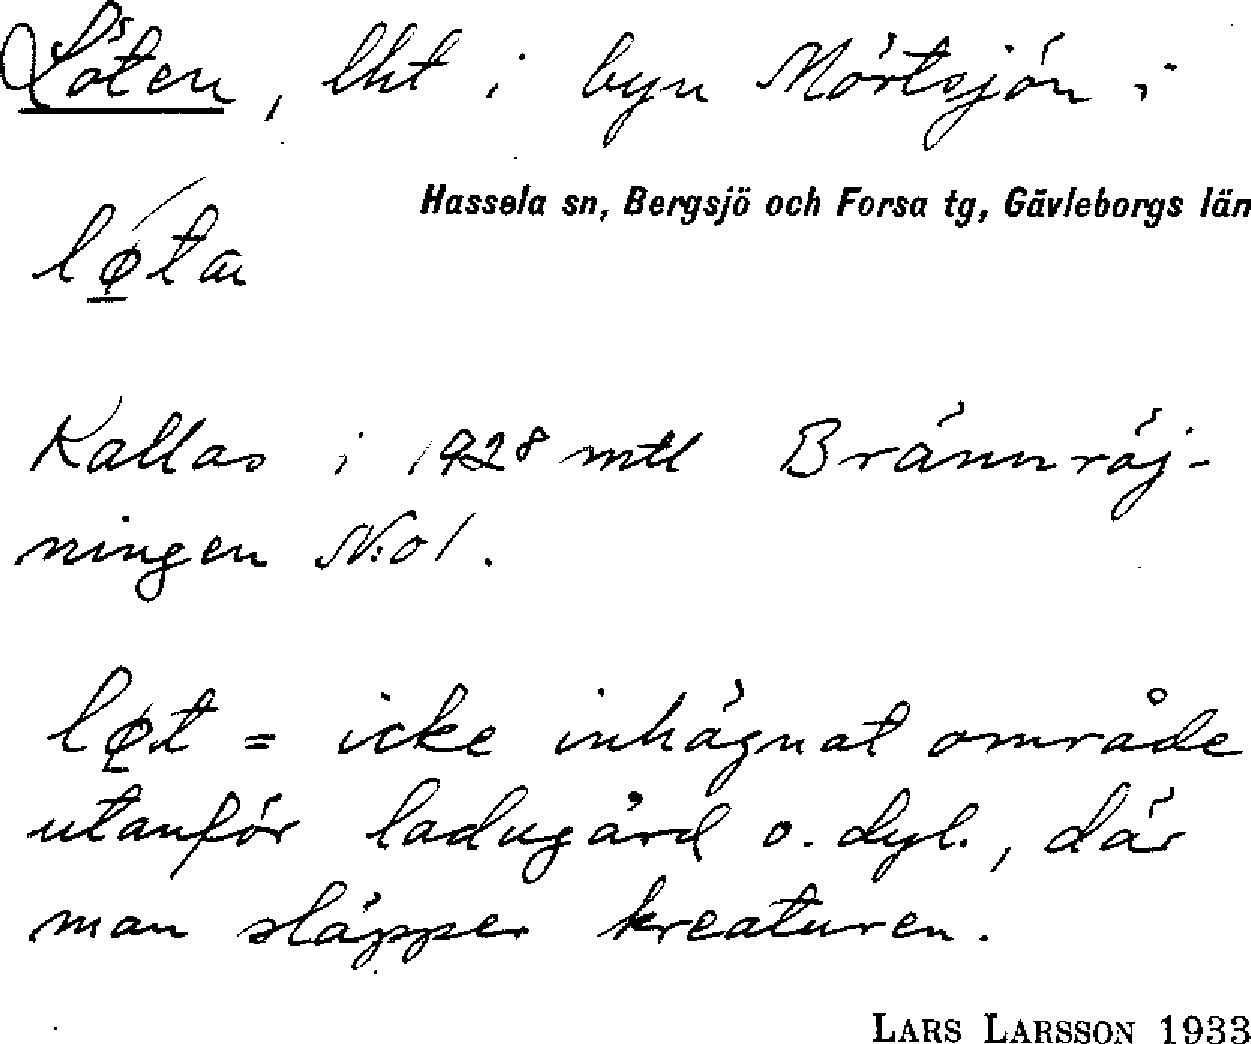 Löten, lht i byn Mörtsjön i
Hassela sn, Bergsjö och Forsa tg, Gävleborgs län
lǿ̱ta
Kallas i 1928 mtl Brännröj-
ningen N:o 1.
løt = icke inhägnat område
utanför ladugård o. dyl., där
man släpper kreaturen.
LARS LARSSON 1933